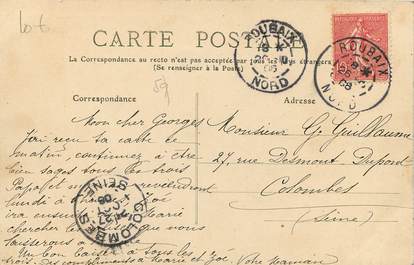 CARTE POSTALE
La Correspondance au recto n'est pas acceptée par tous les pays étrangers
(Se renseigner à la Poste)
ROUBAIX
NORD
ROUBAIX
NORD
Correspondance
Adresse
59
Mon cher Georges
J'ai reçu ta carte ce
matin, continuez à être
bien sages tous les trois
Papa et
reviendront
lundi à
ira
chercher
laisserons à
Un bon baiser à tous les
trois. Des compliments à Marie et Zoé. Votre Maman
Monsieur G. Guillaume
27, rue Desmont-Dupont
Colombes
(Seine)
COLOMBES
SEINE